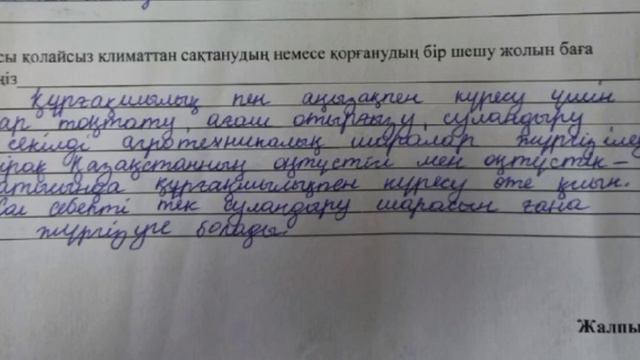 сы қолайсыз климаттан сақтанудың немесе қорғанудың бір шешу жолын баға
ңіз
Құрғақшылық пен аңызақпен күресу үшін
ар тоқтату, ағаш отырғызу, суландыру
секілді агротехникалық шаралар жүргізілед
ірақ Қазақстанның оңтүстігі мен оңтүстік-
атысында құрғақшылықпен күресу өте қиын.
Сол себепті тек суландыру шарасын ғана
жүргізуге болады.
Жалпы